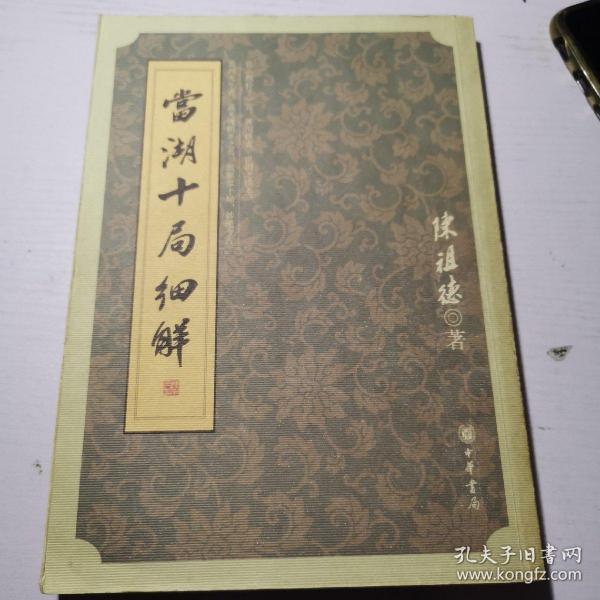 當湖十局细解
陳祖德◎著
中华書局
孔夫子旧书网
www.kongfz.com